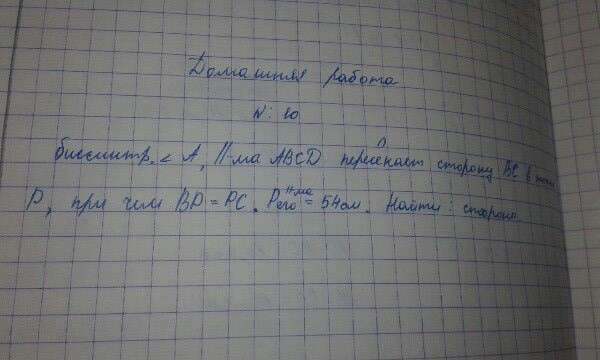 Домашняя работа
N: 10
биссектр. < A, ||-ма ABCD пересекает сторону BC в точке
P, при чем BP = PC. Pего ||-ма = 54 см. Найти: стороны